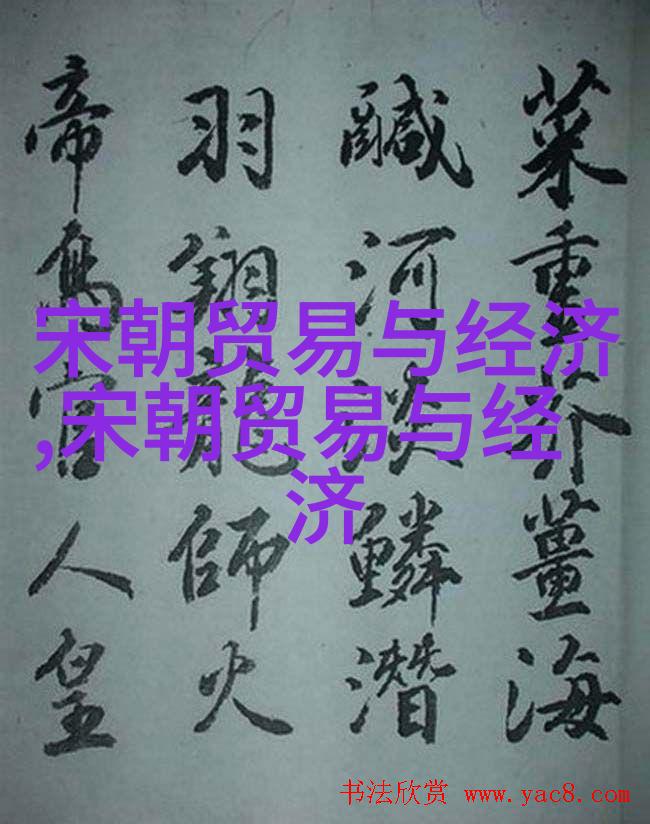 菜重芥薑海
鹹河淡鱗潛
羽翔龍師火
帝鳥官人皇
宋朝贸易与经济
,宋朝贸易与经
济
书法欣赏 www.yac8.com